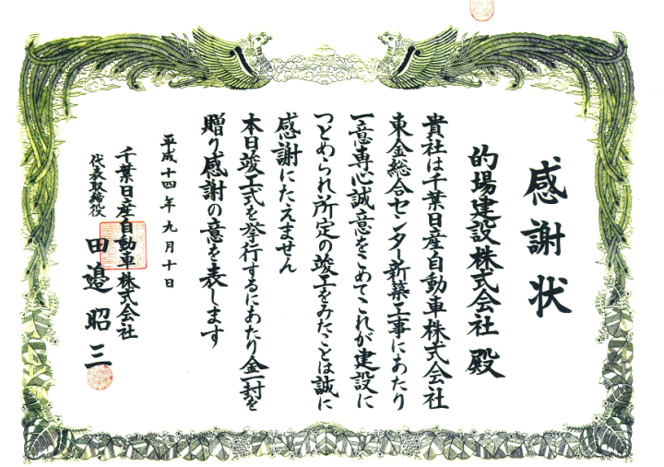 感謝状
的場建設株式会社 殿
貴社は千葉日産自動車株式会社
東金総合センター新築工事にあたり
一意専心誠意をこめてこれが建設に
つとめられ所定の竣工をみたことは誠に
感謝にたえません
本日竣工式を挙行するにあたり金一封を
贈り感謝の意を表します
平成十四年九月十日
千葉日産自動車株式会社
代表取締役 田邉昭三